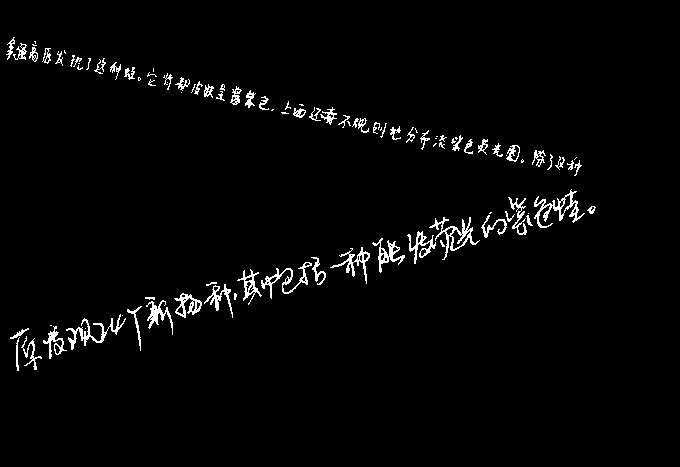 高原发现了这种蛙。它背部皮肤呈深紫色,上面还有不规则地分布淡紫色荧光圈。除了这种
原发现24个新物种,其中包括一种能发荧光的紫色蛙。